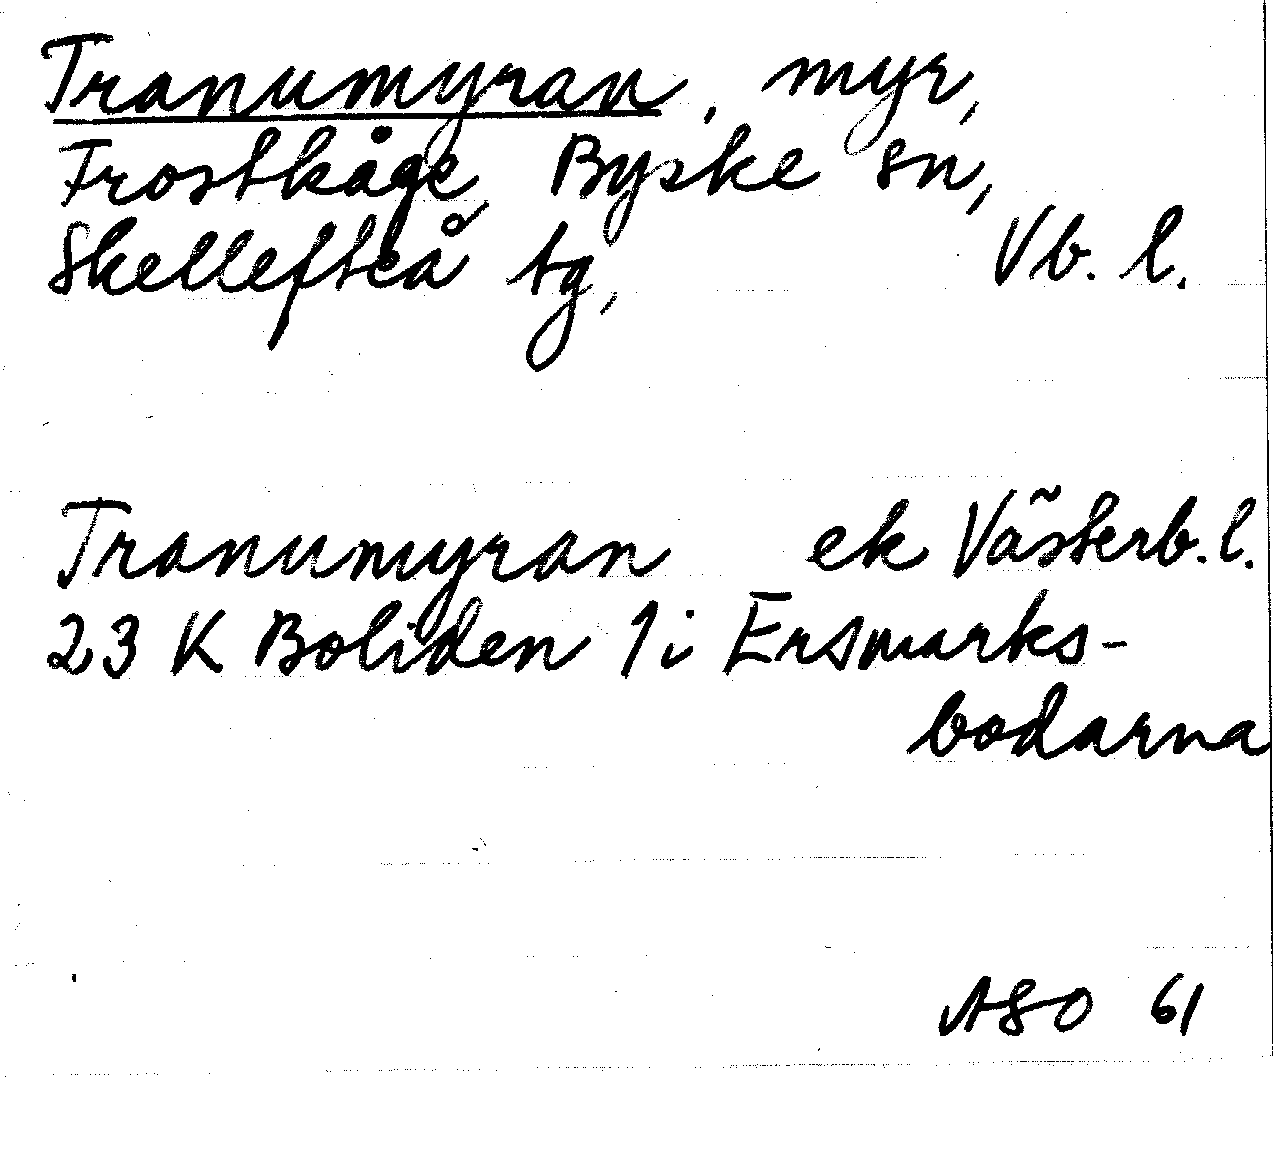 Tranumyran, myr,
Frostkåge, Byske sn,
Skellefteå tg, Vb. l.
Tranumyran ek Västerb. l.
23 K Boliden 1 i Ersmarks-
bodarna
ASO 61